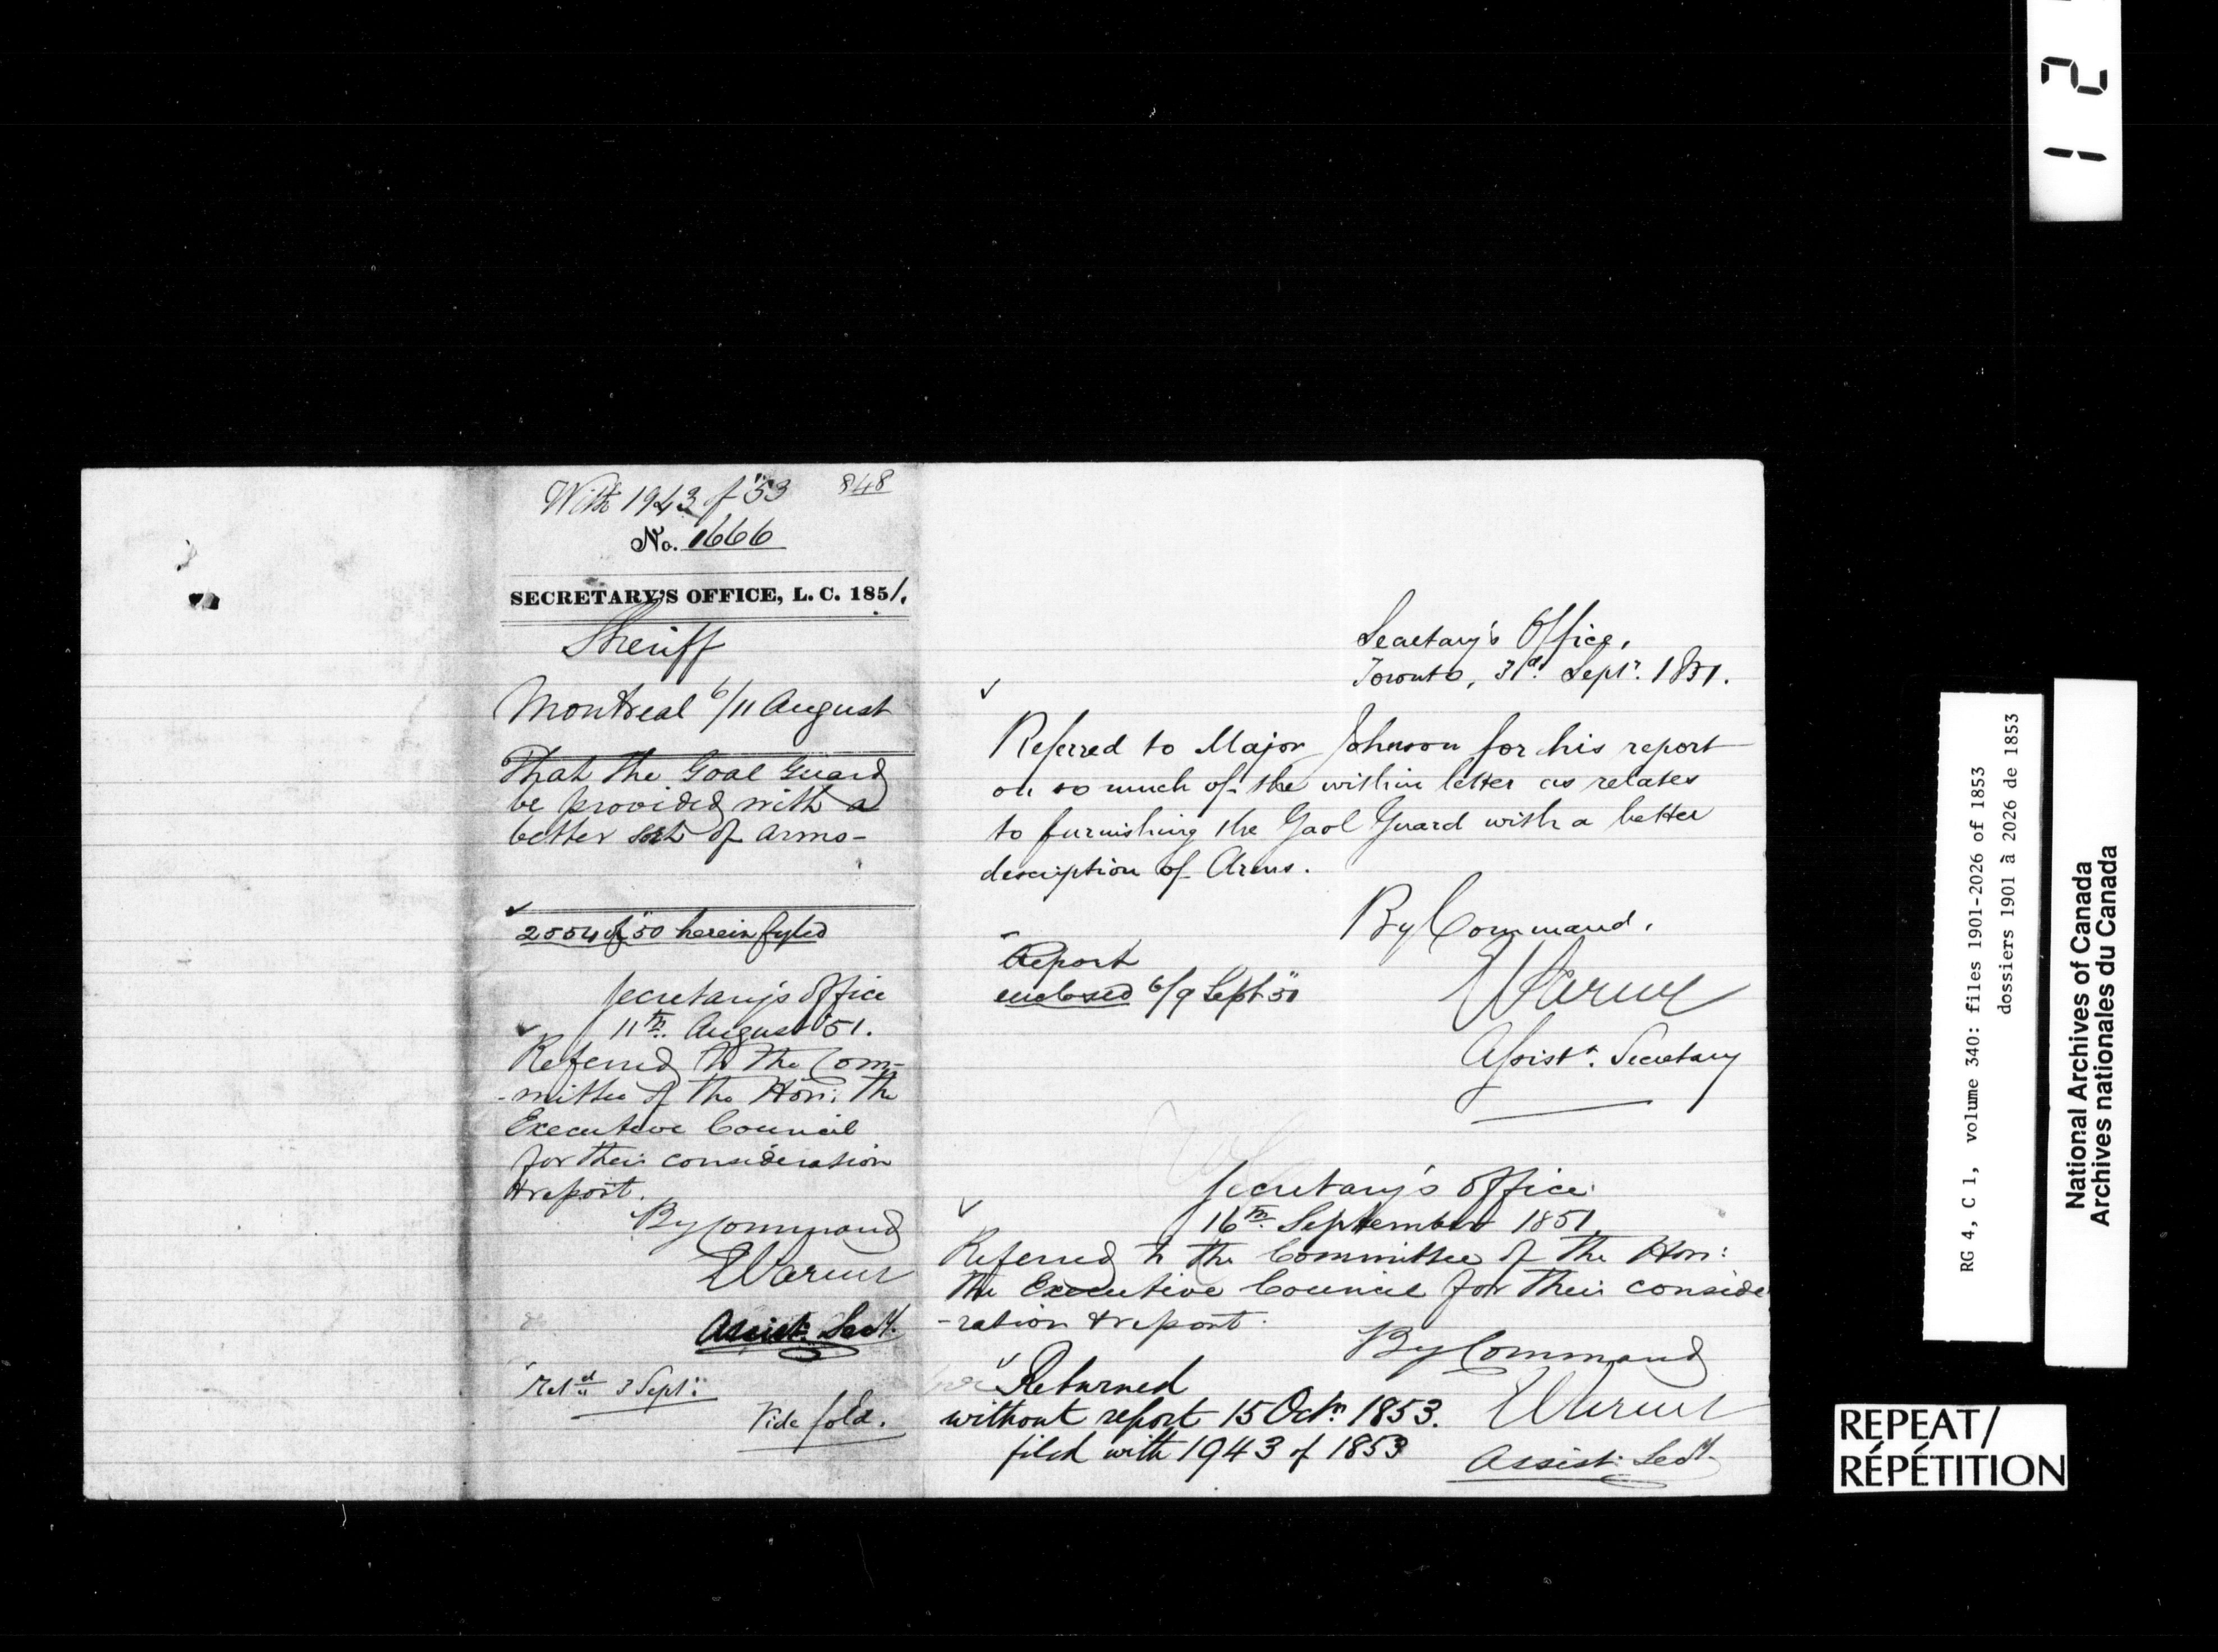 With 1943 of "53
848
No. 1666
SECRETARY'S OFFICE, L. C. 1851.
Sheriff
Montreal 6/11 August
That the Goal Guard
be provided with a
better sort of arms-
2054 of "50 herein fyled
Secretary's Office
11th August '51.
Referred to the Com-
-mittee of the Hon: the
Executive Council
for their consideration
& report.
By Command
Assist: Secy.
Retd 3 Sept:
Vide fold.
Secretary's Office,
Toronto, 3d. Septr. 1851.
Referred to Major Johnson for his report
on so much of the within letter as relates
to furnishing the Gaol Guard with a better
description of Arms.
By Command.
Assistt. Secretary
Report
enclosed 6/9 Sept "51
Secretary's Office
16th September 1851.
Referred to the Committee of the Hon:
the Executive Council for their conside
-ration & report.
By Command
Assist: Secy.
Returned
without report 15 Octr. 1853.
filed with 1943 of 1853
1 2
RG 4, C 1, volume 340: files 1901-2026 of 1853
dossiers 1901 à 2026 de 1853
National Archives of Canada
Archives nationales du Canada
REPEAT/
RÉPÉTITION